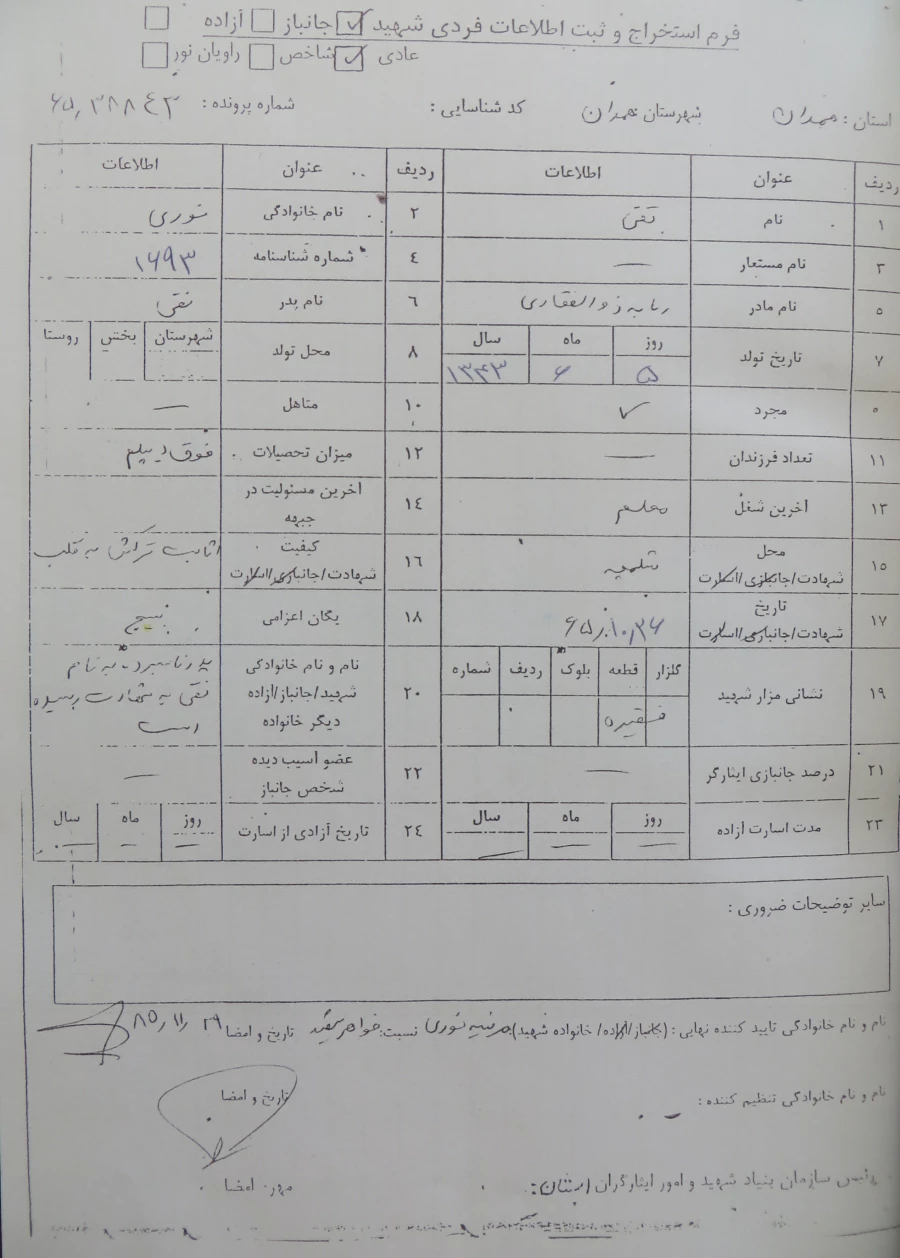 فرم استخراج و ثبت اطلاعات فردی شهید ☑ جانباز ☐ آزاده ☐
عادی ☑ شاخص ☐ راویان نور ☐
استان : همدان شهرستان همدان کد شناسایی : شماره پرونده :
ردیف عنوان اطلاعات ردیف عنوان اطلاعات
۱ نام تقی ۲ نام خانوادگی نوری
۳ نام مستعار — ٤ شماره شناسنامه ۱۶۹۳
۵ نام مادر ربابه ذوالفقاری ٦ نام پدر نقی
۷ تاریخ تولد روز ماه سال ۸ محل تولد شهرستان بخش روستا
۵ ۶ ۱۳۴۳
۹ مجرد ✓ ۱۰ متاهل —
۱۱ تعداد فرزندان — ۱۲ میزان تحصیلات فوق دیپلم
۱۳ آخرین شغل معلم ۱٤ آخرین مسئولیت در جبهه
۱۵ محل شهادت/جانبازی/اسارت شلمچه ۱٦ کیفیت شهادت/جانبازی/اسارت اثابت ترکش به قلب
۱۷ تاریخ شهادت/جانبازی/اسارت ۱۸ یگان اعزامی بسیج
۱۹ نشانی مزار شهید گلزار قطعه بلوک ردیف شماره ۲۰ نام و نام خانوادگی شهید/جانباز/آزاده دیگر خانواده
به شهادت رسیده است
۲۱ درصد جانبازی ایثارگر — ۲۲ عضو آسیب دیده شخص جانباز —
۲۳ مدت اسارت آزاده روز ماه سال ۲٤ تاریخ آزادی از اسارت روز ماه سال
— — — — — —
سایر توضیحات ضروری :
نام و نام خانوادگی تایید کننده نهایی : (جانباز/آزاده/ خانواده شهید) مرضیه نوری نسبت: خواهر شهید تاریخ و امضا ۸۵/۱۱/۲۹
نام و نام خانوادگی تنظیم کننده : تاریخ و امضا
رئیس سازمان بنیاد شهید و امور ایثارگران استان: مهر، امضا